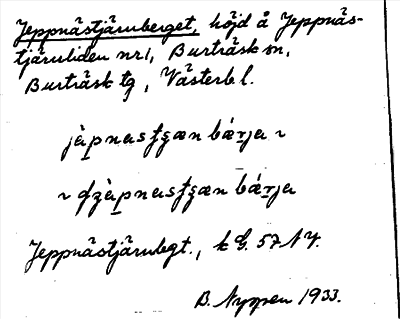 Jeppnästjärnberget, höjd å Jeppnäs-
tjärnliden nr 1, Burträsk sn,
Burträsk tg, Västerb l.
jàpnasʈʂæn bǽrja ~
~ dʐàpnasʈʂæn bǽrja
Jeppnästjärnbgt., k G. 57 NY.
B. Nyppen 1933.